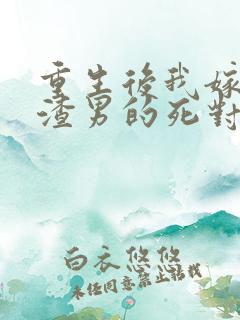 重生後我嫁
渣男的死對
白衣悠悠
未经同意禁止转载